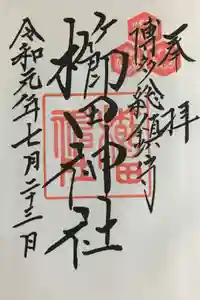 奉拝
博多総鎮守
櫛田神社
令和元年七月二十三日